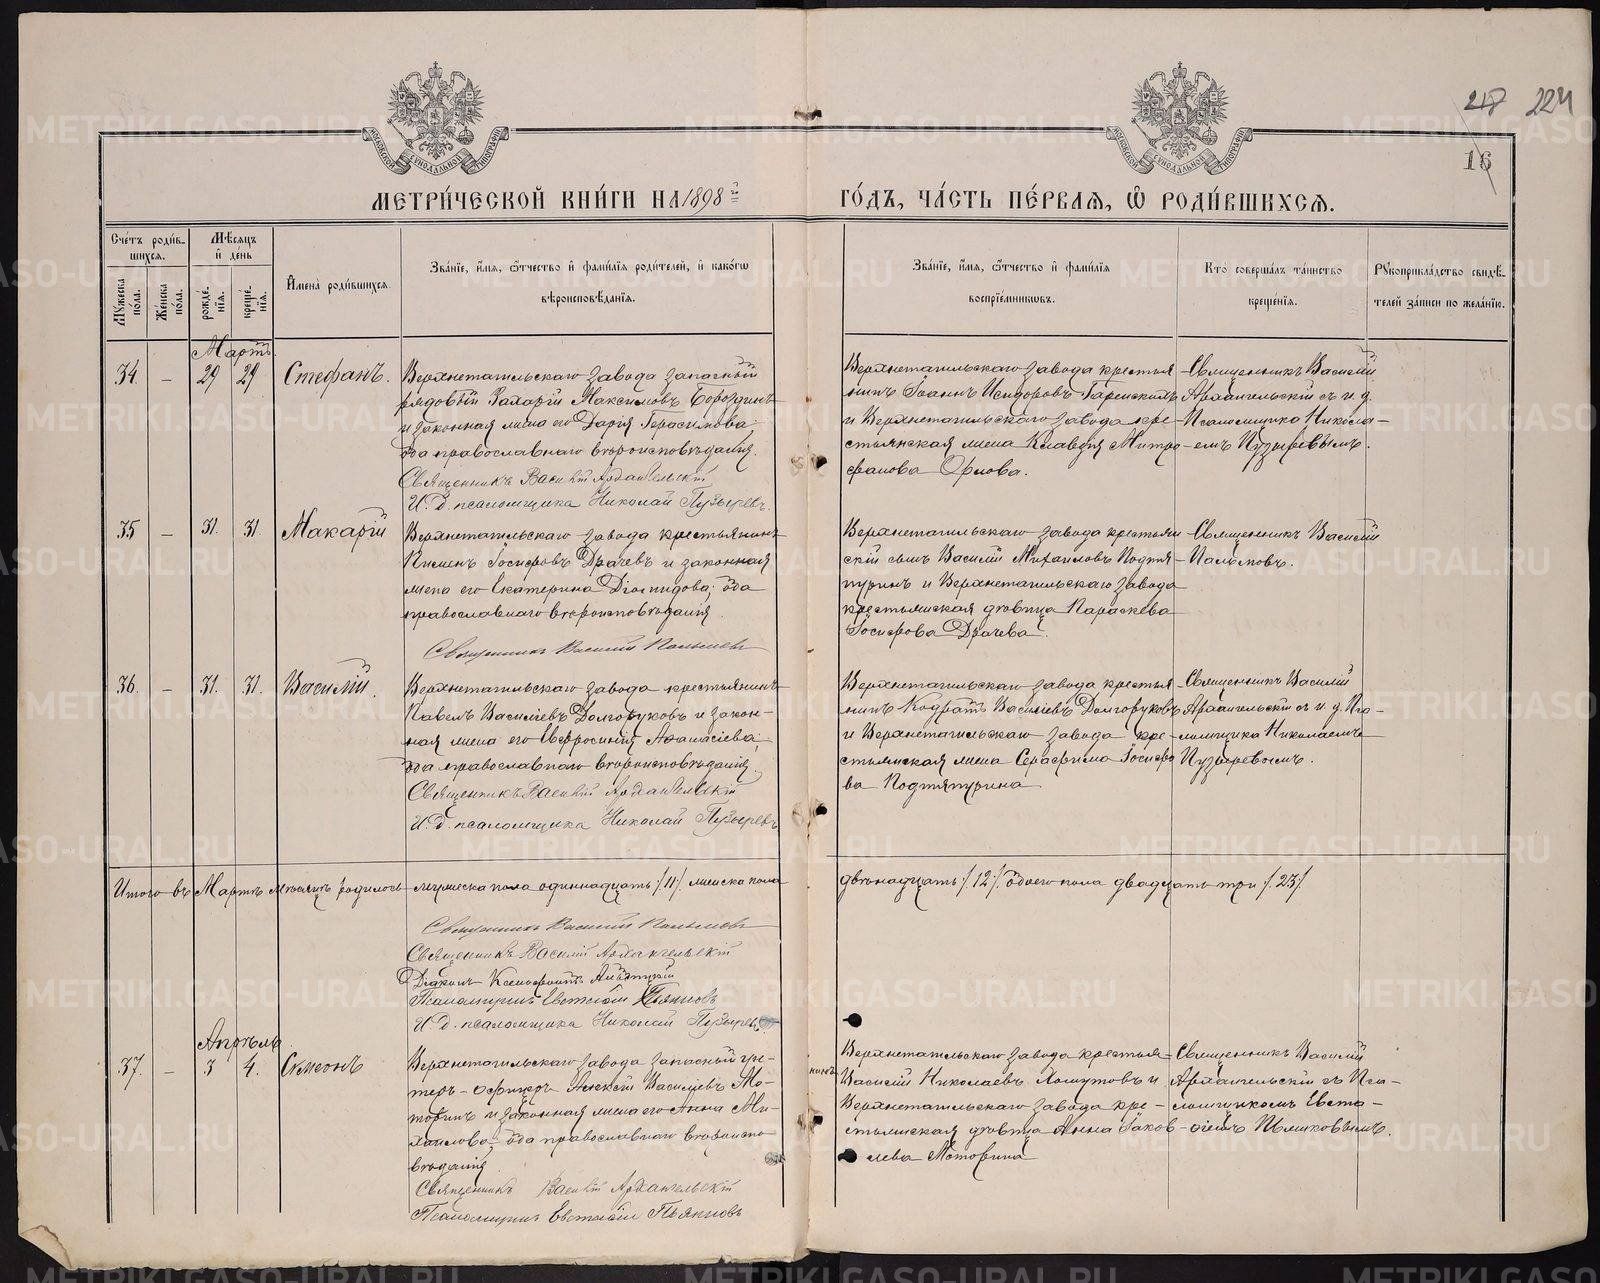 218 224
16
МОСКОВСКОЙ СУНОДАЛЬНОЙ ТИПОГРАФІИ
МОСКОВСКОЙ СУНОДАЛЬНОЙ ТИПОГРАФІИ
МЕТРИ́ЧЕСКОЙ КНИ́ГИ НА 1898й
ГО́ДЪ, ЧА́СТЬ ПЕ́РВАѦ, Ѡ҆ РОДИ́ВШИХСѦ.
Сче́тъ роди́вшихсѧ.
Мꙋ́жеска по́ла.
Же́нска по́ла.
Мѣ́сѧцъ и҆ де́нь
рожде́нїѧ.
креще́нїѧ.
И҆мена̀ роди́вшихсѧ.
Зва́нїе, и҆́мѧ, ѻ҆́тчество и҆ фами́лїѧ роди́телей, и҆ како́гѡ
вѣроисповѣ́данїѧ.
Зва́нїе, и҆́мѧ, ѻ҆́тчество и҆ фами́лїѧ
воспрїе́мникѡвъ.
Кто̀ соверша́лъ та́инство
креще́нїѧ.
Рꙋкоприкла́дство свидѣ́-
телей за́писи по жела́нїю.
Мартъ.
34. – 29 29 Стефанъ.
Верхнетагильскаго завода запасный
рядовый Захарій Максимовъ Бороздинъ
и законная жена его Дарія Герасимова,
оба православнаго вѣроисповѣданія.
Священникъ Василій Архангельскій
И. д. псаломщика Николай Пузыревъ.
Верхнетагильскаго завода крестья-
нинъ Іоаннъ Исидоровъ
и Верхнетагильскаго завода кре-
стьянская жена Клавдія Митро-
фанова Орлова.
Священникъ Василій
Архангельскій съ и. д.
Псаломщика Никола-
емъ Пузыревымъ.
35 – 31. 31. Макарій
Верхнетагильскаго завода крестьянинъ
Пименъ Іосифовъ Драчевъ и законная
жена его Екатерина Діомидова, оба
православнаго вѣроисповѣданія.
Священникъ Василій Пальмовъ
Верхнетагильскаго завода крестьян-
скій сынъ Василій Михаиловъ Подтя-
пуринъ и Верхнетагильскаго завода
крестьянская дѣвица Параскева
Іосифова Драчева.
Священникъ Василій
Пальмовъ.
36. – 31. 31. Василій.
Верхнетагильскаго завода крестьянинъ
Павелъ Василіевъ Долгоруковъ и закон-
ная жена его Евфросинія Афанасіева,
оба православнаго вѣроисповѣданія.
Священникъ Василій Архангельскій
И. д. псаломщика Николай Пузыревъ
Верхнетагильскаго завода крестья-
нинъ Кодратъ Василіевъ Долгоруковъ
и Верхнетагильскаго завода кре-
стьянская жена Серафима Іосифо-
ва Подтяпурина
Священникъ Василій
Архангельскій съ и. д. Пса-
ломщика Николаемъ
Пузыревымъ.
Итого въ Мартѣ мѣсяцѣ родилось мужеска пола одиннадцать /11/ женска пола
двѣнадцать /12/ обоего пола двадцать три /23/
Священникъ Василій Пальмовъ
Священникъ Василій Архангельскій
Діаконъ Ксенофонтъ
Псаломщикъ Евстафій Пьянковъ
И. д. псаломщика Николай Пузыревъ
Апрѣль.
37. – 3 4. Сѵмеонъ
Верхнетагильскаго завода запасный ун-
теръ-офицеръ Алексій Василіевъ Мо-
торинъ и законная жена его Анна Ми-
хаилова, оба православнаго вѣроиспо-
вѣданія.
Священникъ Василій Архангельскій
Псаломщикъ Евстафій Пьянковъ
Верхнетагильскаго завода крестья-
нинъ Василій Николаевъ Хомутовъ и
Верхнетагильскаго завода кре-
стьянская дѣвица Анна Іаков-
лева Моторина
Священникъ Василій
Архангельскій съ Пса-
ломщикомъ Евста-
фіемъ Пьянковымъ.
METRIKI.GASO-URAL.RU